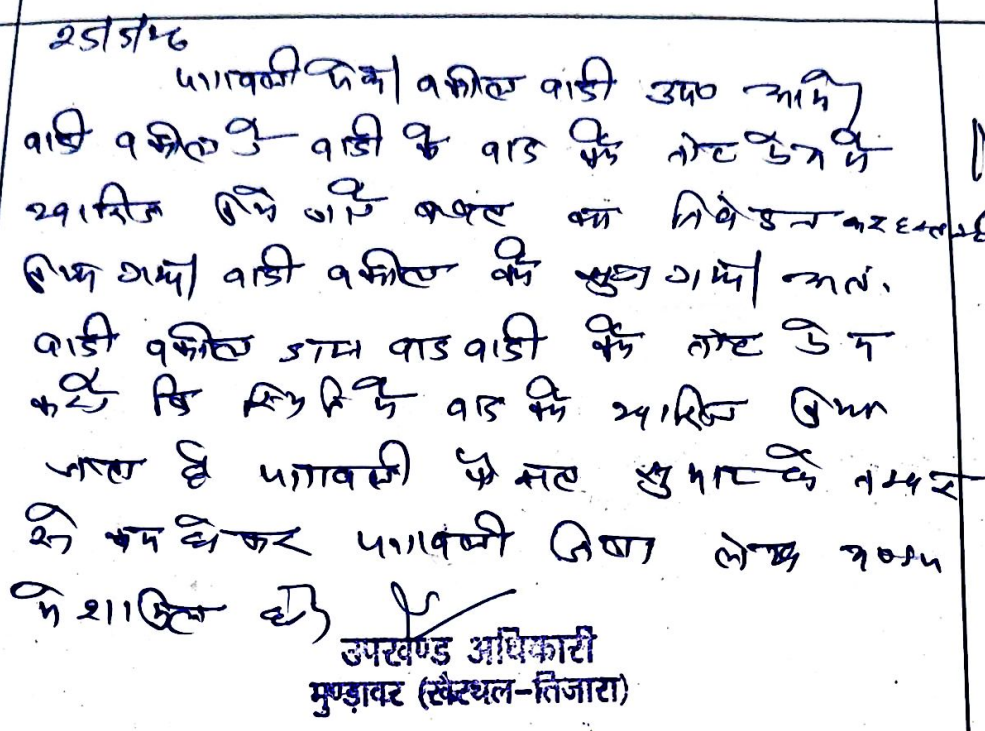 पत्रावली पेश। वकील वादी उप० आये।
वादी वकील ने वादी के वाद को नोट प्रेस में
खारिज किये जाने बाबत का निवेदन कर हस्ताक्षर
किया गया। वादी वकील को सुना गया। अतः
वादी वकील द्वारा वाद वादी को नोट प्रेस
करने कि स्थिति में वाद को खारिज किया
जाता है पत्रावली फैसल सुमार के नम्बर
से कम होकर पत्रावली जिला लेख
में शामिल हो।
उपखण्ड अधिकारी
मुण्डावर (खैरथल-तिजारा)